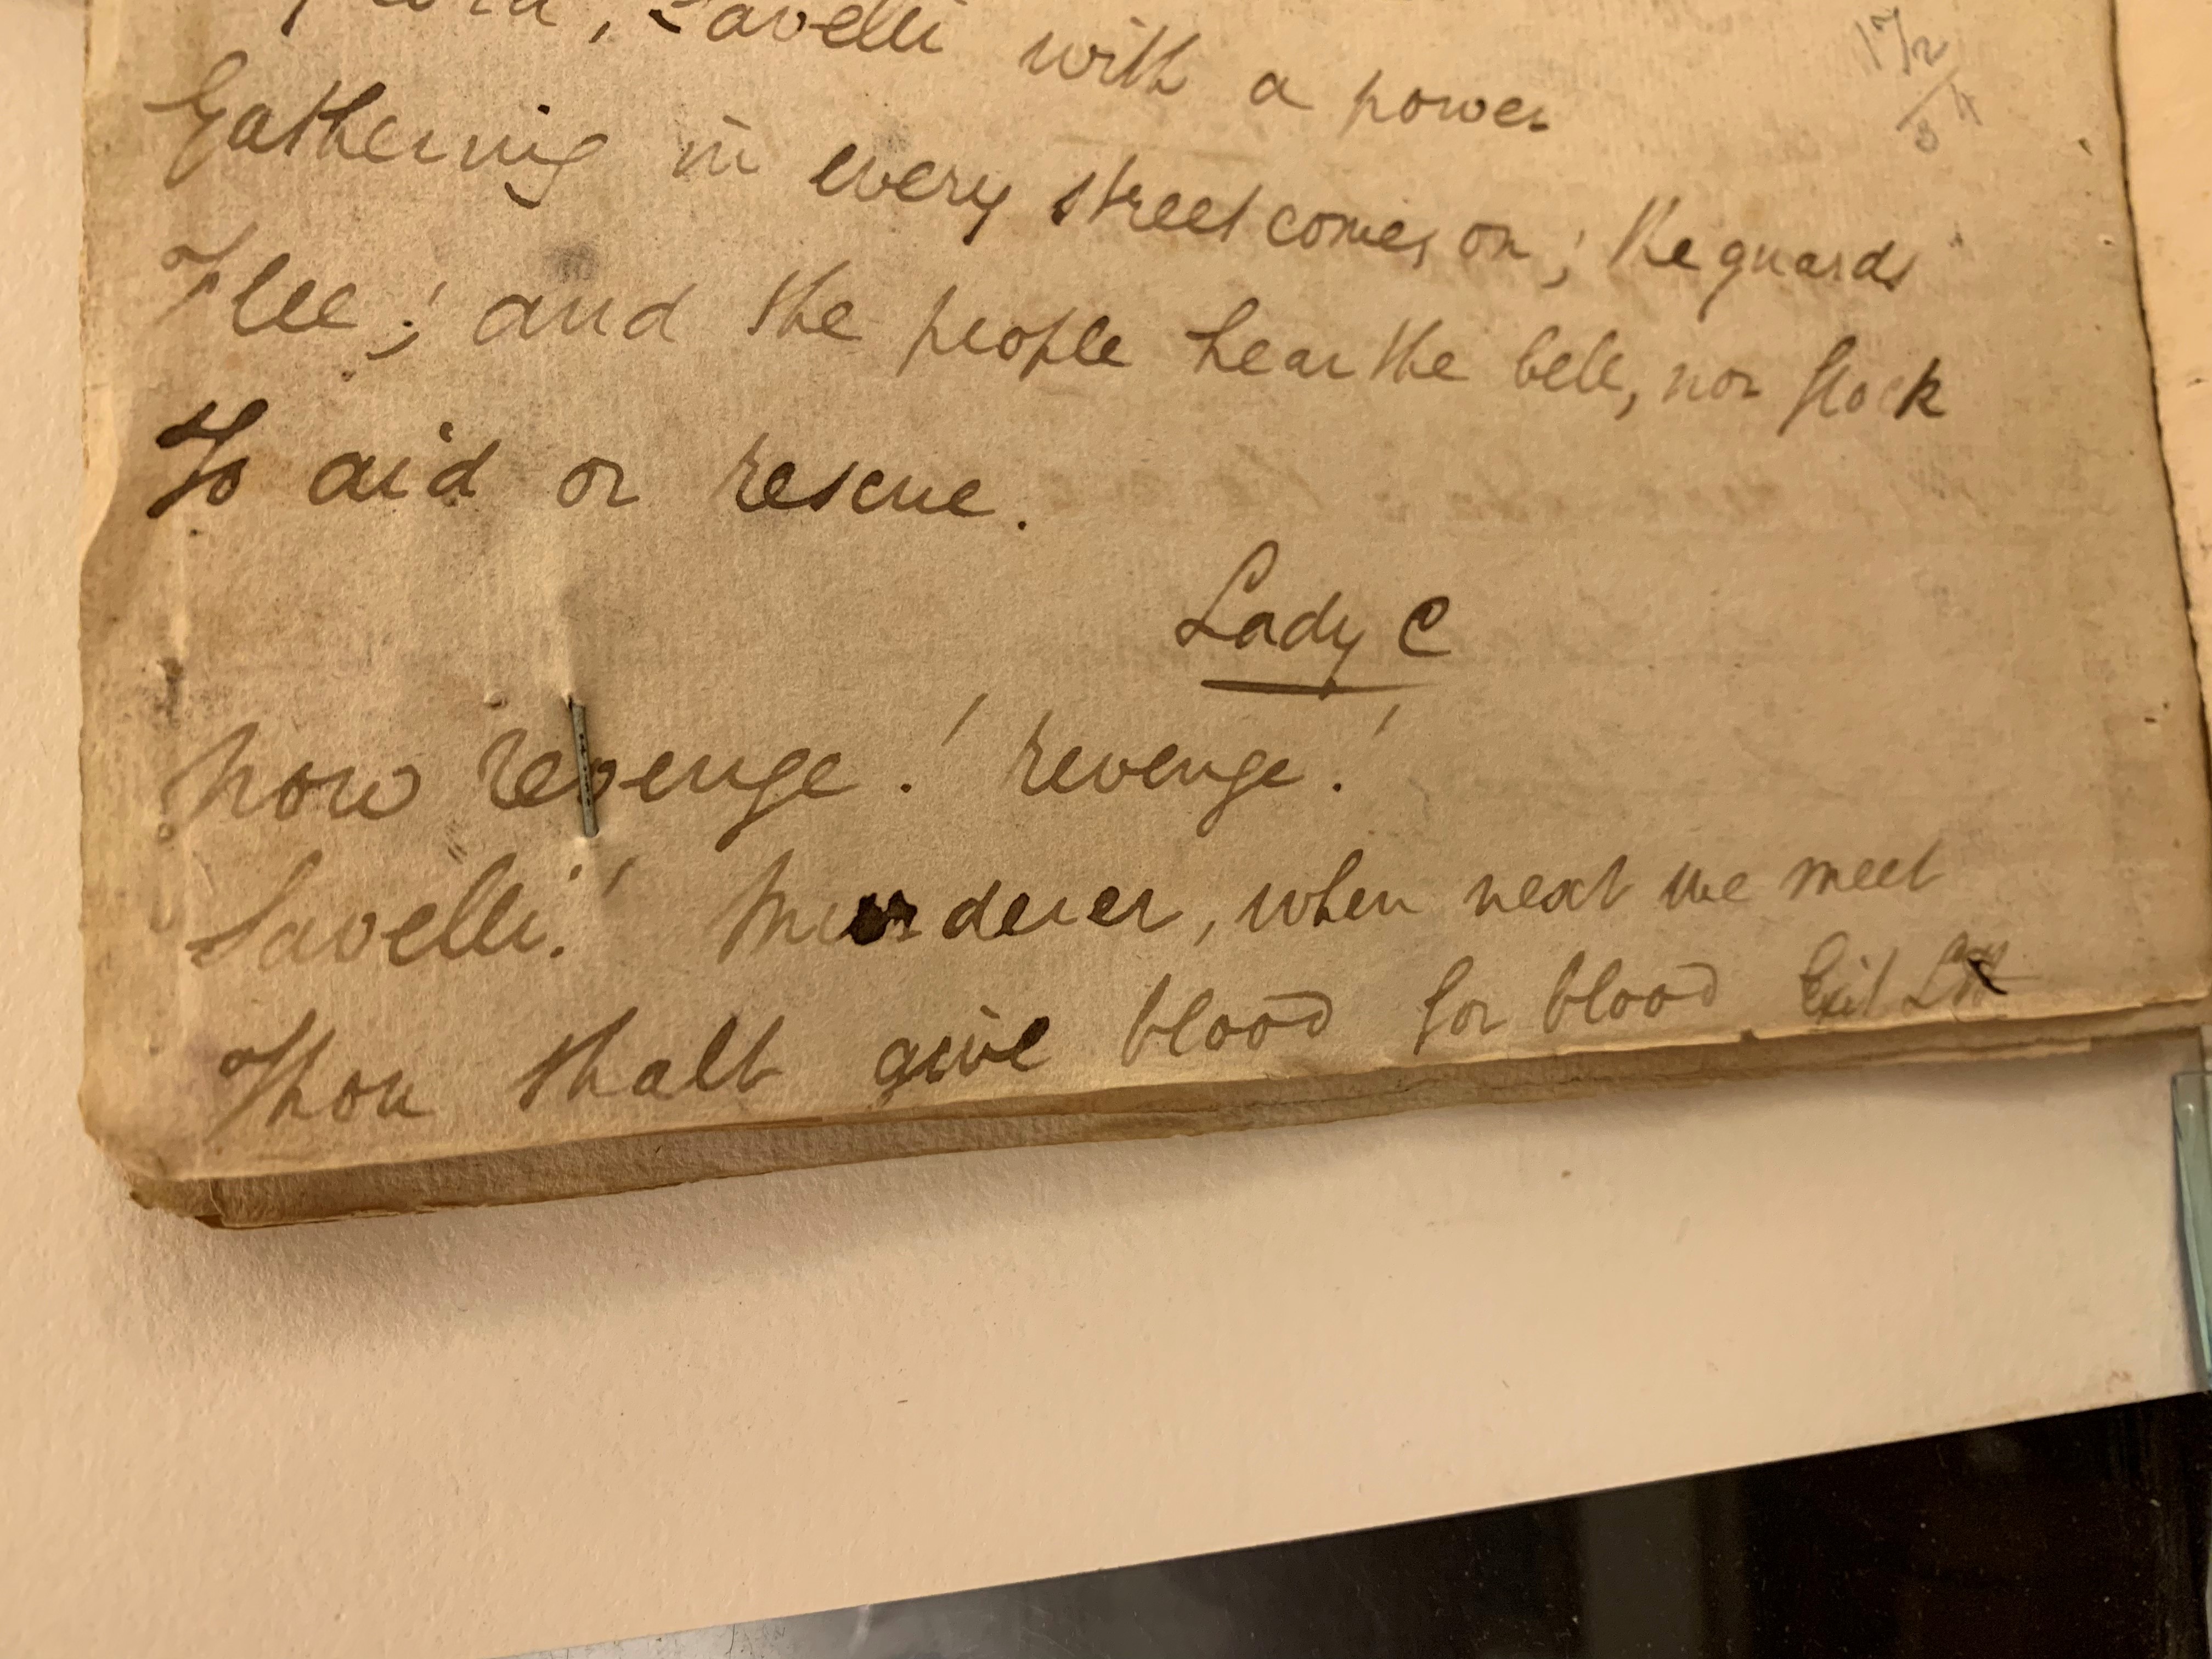 Savelli with a power
Gathering in every street comes on; the guards
Flee; and the people hear the bell, nor flock
To aid or rescue.
Lady C
Now revenge! revenge!
Savelli! Murderer, when next we meet
Thou shalt give blood for blood Exit